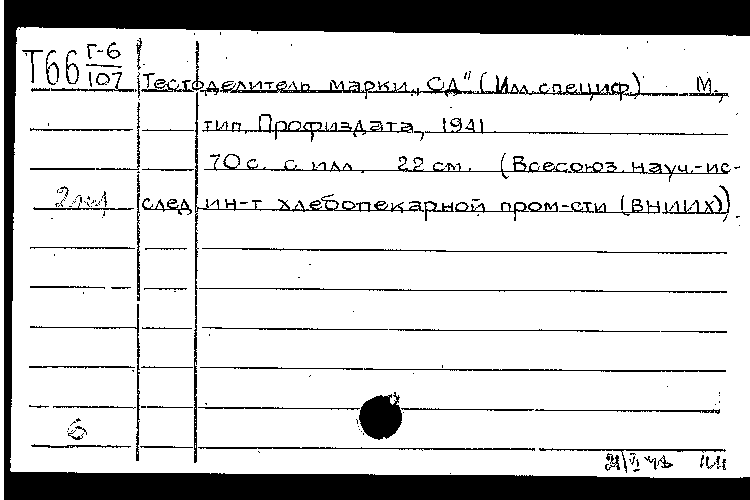 Т66 Г-6/107
Тестоделитель марки „СД" (Илл. специф.) М.,
тип. Профиздата, 1941.
70 с. с илл. 22 см. (Всесоюз. науч.-ис-
2 экз
след ин-т хлебопекарной пром-сти (ВНИИХ)).
6